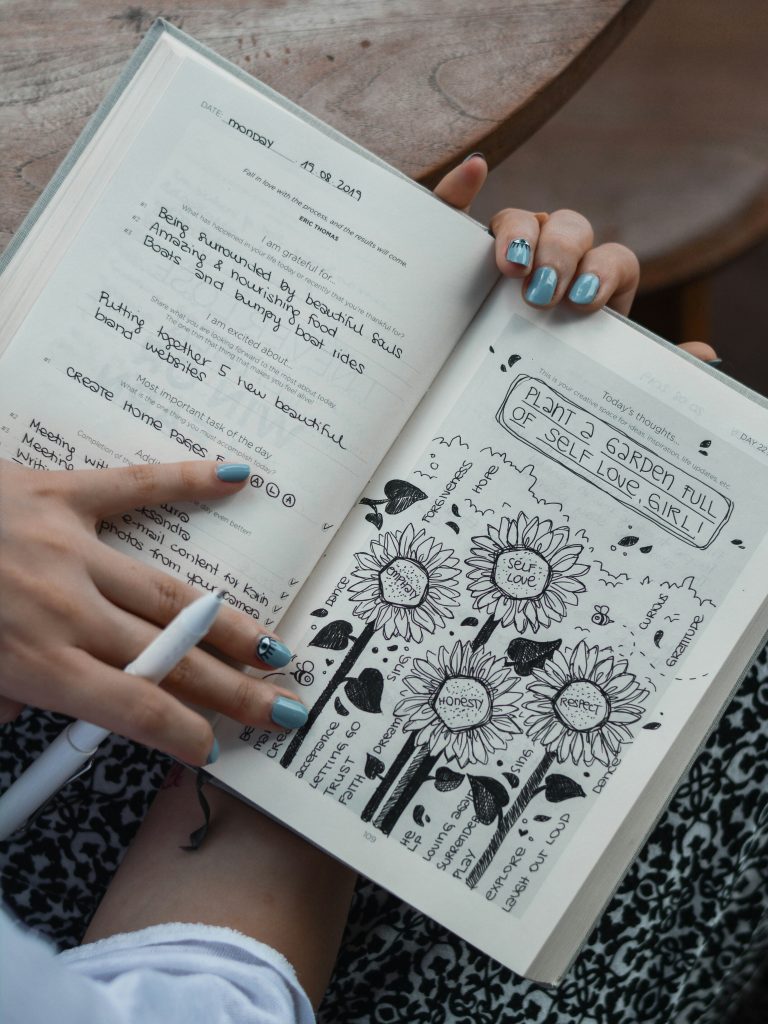 DATE: monday 19.08.2019
Fall in love with the process, and the results will come.
ERIC THOMAS
I am grateful for...
What has happened in your life today or recently that you're thankful for?
#1 Being surrounded by beautiful souls
#2 Amazing & nourishing food
#3 Boats and bumpy boat rides
I am excited about...
Share what you are looking forward to the most about today.
The one thin that thing that makes you feel alive!
Putting together 5 new beautiful
band websites
Most important task of the day
What is the one thing you must accomplish today?
#1 CREATE HOME PAGES ALA
#2 Meeting with
#3 Meeting
day even better!
e-mail content for Karin
photos from your camera
DAY 22
Today's thoughts...
This is your creative space for ideas, inspiration, life updates, etc.
PLANT A GARDEN FULL
OF SELF LOVE, GIRL!
FORGIVENESS
HOPE
DANCE
EMPATHY
SELF
LOVE
CURIOUS
GRATITUDE
SING
HONESTY
RESPECT
acceptance
LETTING GO
TRUST
FAITH
Dream
SING
Dance
HELP
LOVING AGAIN
SURRENDER
PLAY
EXPLORE
LAUGH OUT LOUD
109